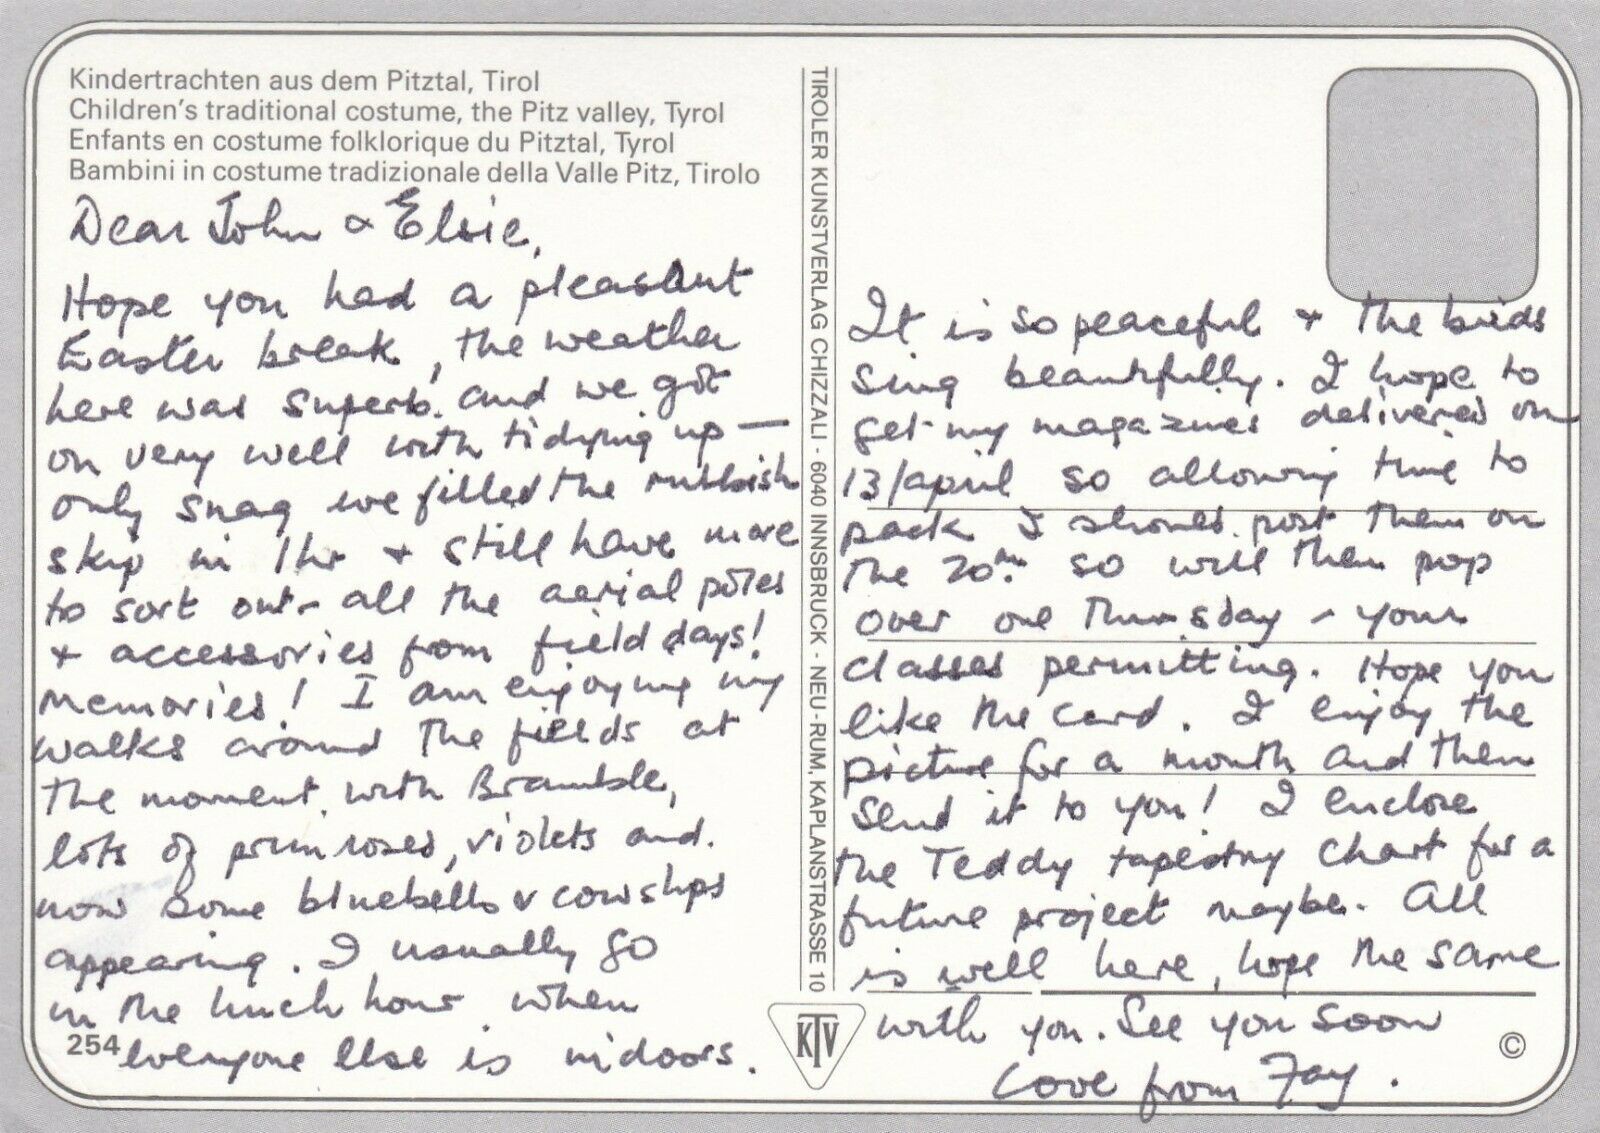 Kindertrachten aus dem Pitztal, Tirol
Children's traditional costume, the Pitz valley, Tyrol
Enfants en costume folklorique du Pitztal, Tyrol
Bambini in costume tradizionale della Valle Pitz, Tirolo
Dear John & Elsie,
Hope you had a pleasant
Easter break, the weather
here was superb. and we got
on very well with tidying up —
only snag we filled the rubbish
skip in 1hr & still have more
to sort out - all the aerial poles
& accessories from field days!
memories! I am enjoying my
walks around the fields at
the moment with Bramble,
lots of primroses, violets and.
now some bluebells & cowslips
appearing. I usually go
in the lunch hour when
everyone else is indoors.
254
TIROLER KUNSTVERLAG CHIZZALI · 6040 INNSBRUCK · NEU-RUM, KAPLANSTRASSE 10
KTV
It is so peaceful & the birds
sing beautifully. I hope to
get my magazines delivered on
13/april so allowing time to
pack I should post them on
the 20th. so will then pop
over one Thursday - your
classes permitting. Hope you
like the card. I enjoy the
picture for a month and then
send it to you! I enclose
the Teddy tapestry chart for a
future project maybe. All
is well here, hope the same
with you. See you soon
Love from Fay.
©